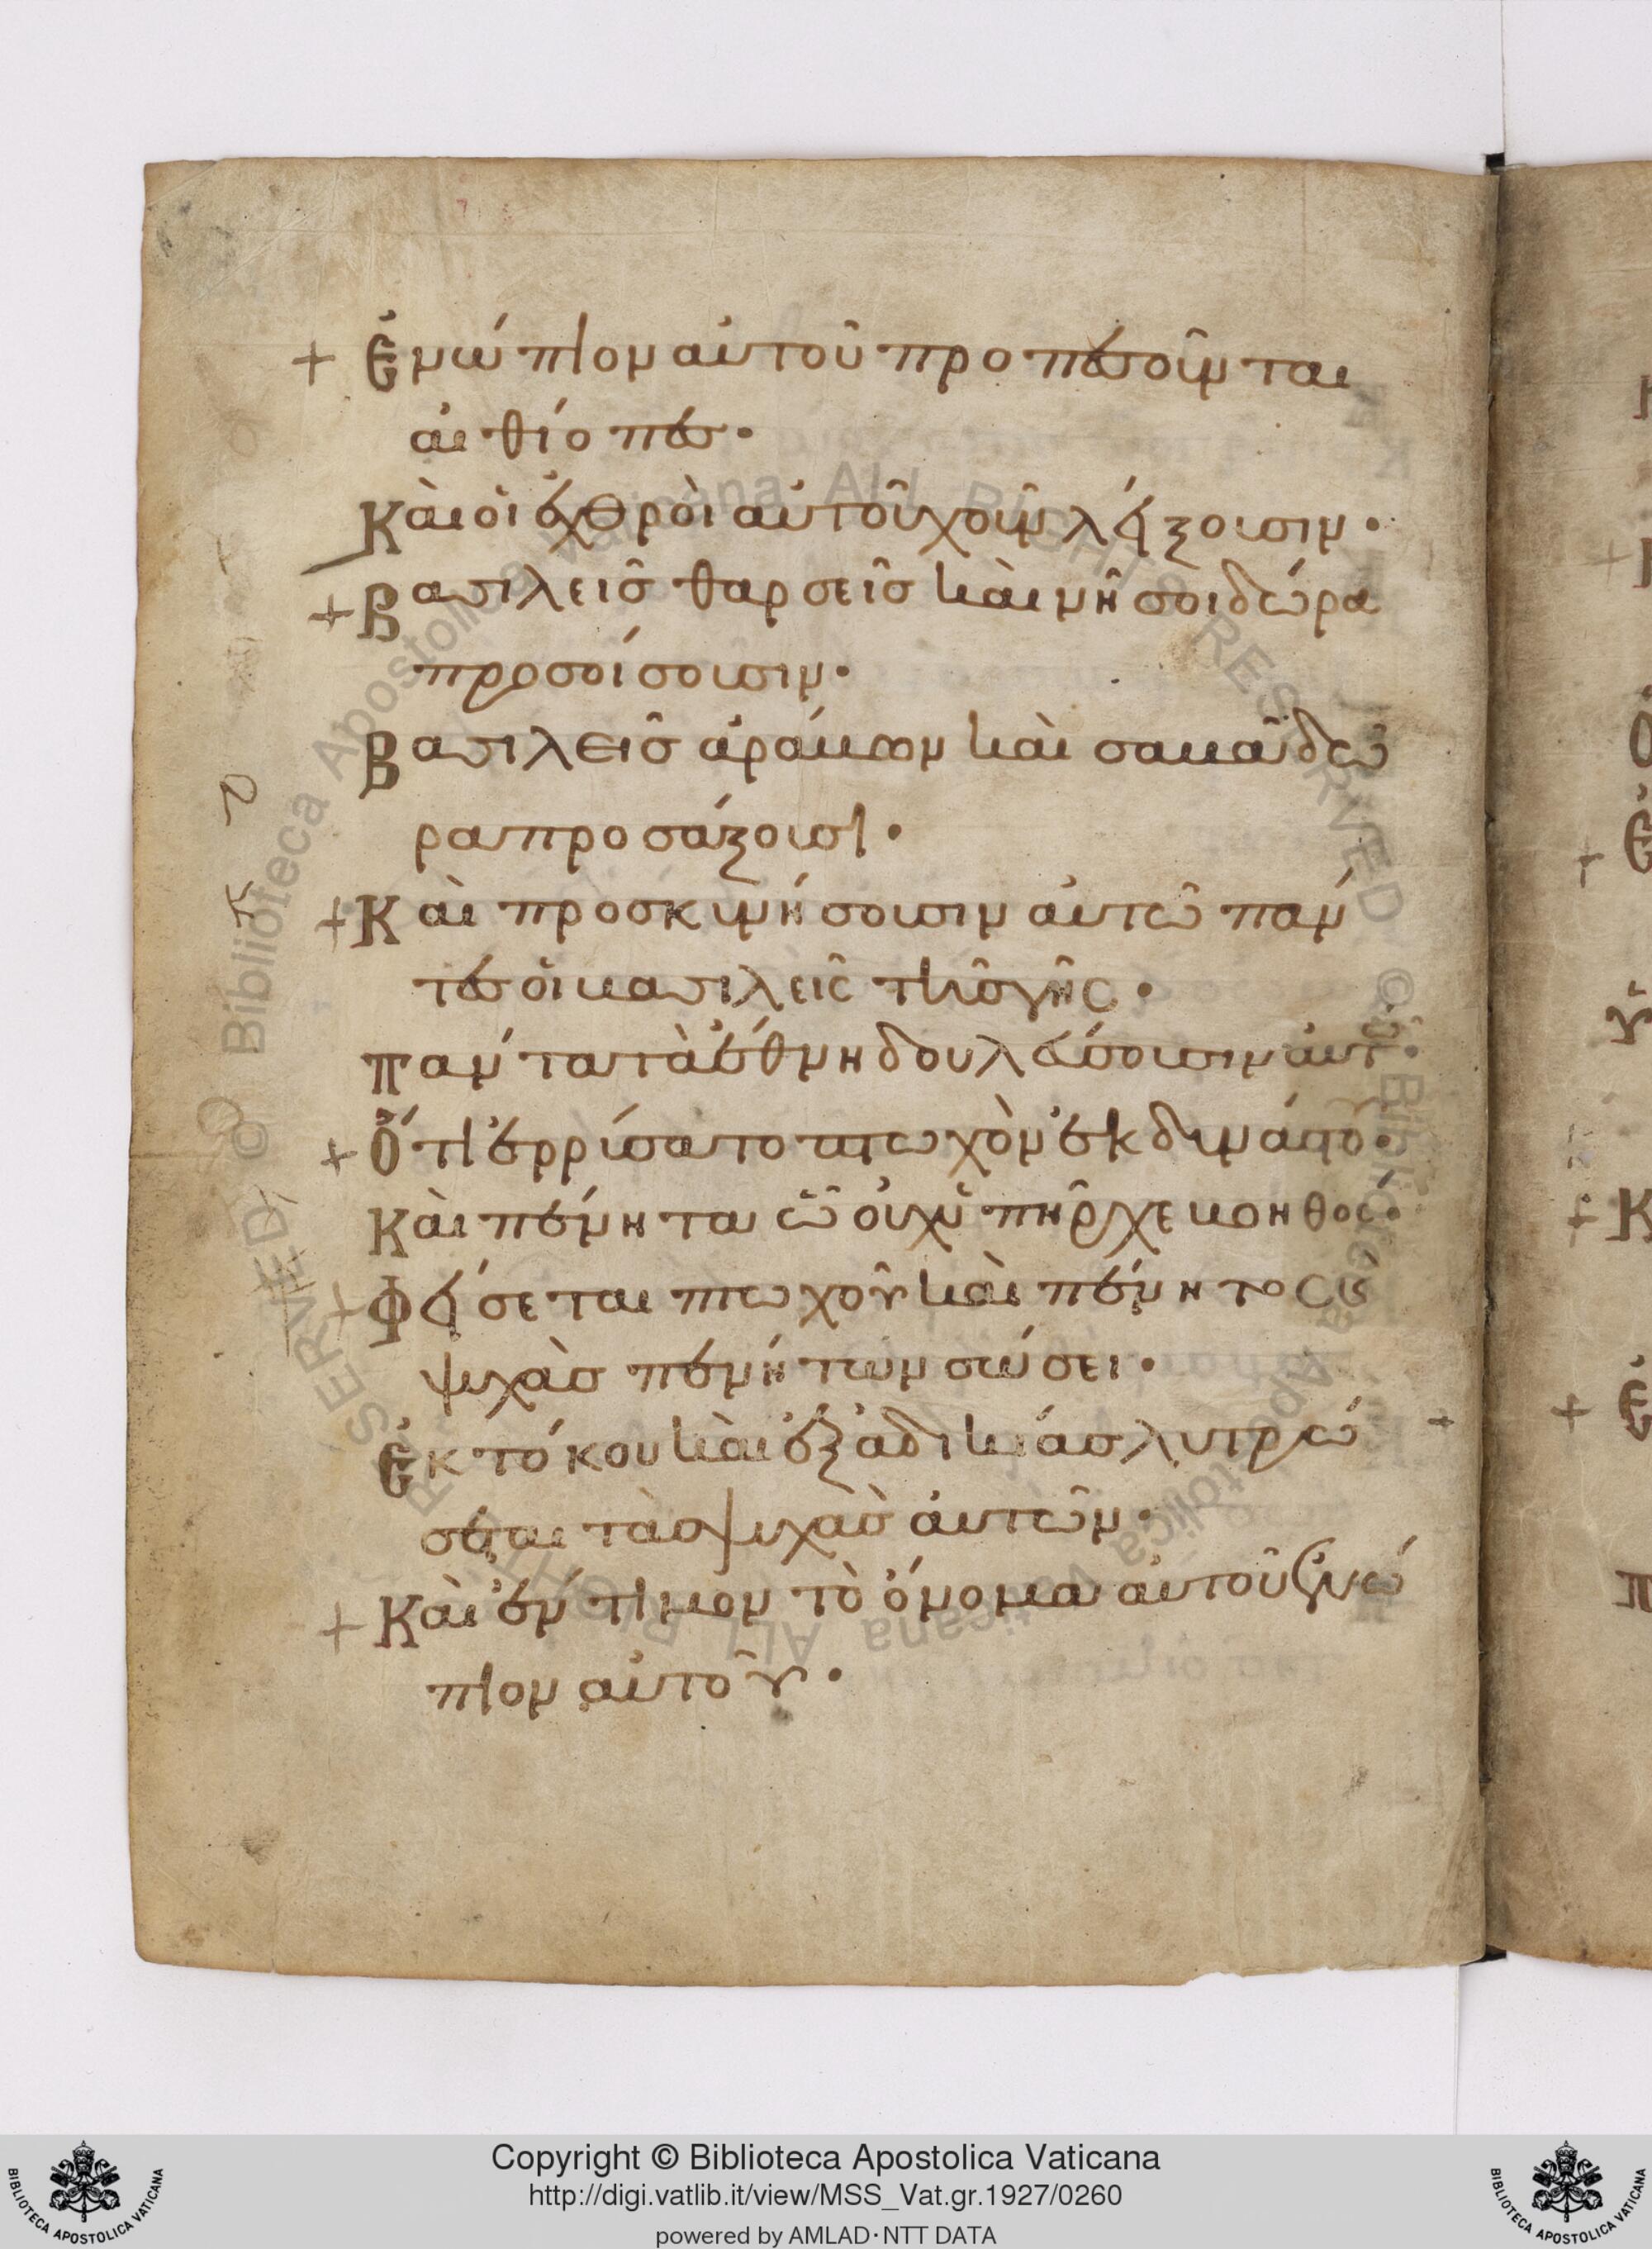 + Ἐνώπιον αὐτοῦ προπεσοῦνται
αἰθίοπεσ·
Κὰι οἱ ἐχθρὸι αὐτοῦ χοῦν λείξουσιν·
+ Βασιλεῖσ θαρσεῖσ κὰι νῆσοι δώρα
προσοίσουσιν·
Βασιλεῖσ ἀράβων κὰι σαβᾶ δῶ
ρα προσάξουσι·
+ Κὰι προσκυνήσουσιν αὐτῶ πάν
τεσ οἱ βασιλεῖς τῆσ γῆς·
Πάντα τὰ ἔθνη δουλεύσουσιν ἀυτ·
+ Ὅτι ἐρρύσατο πτωχὸν ἐκ δυνάστου·
Κὰι πένητα ὧ οὐχ ὑπῆρχε βοηθος·
+ Φείσεται πτωχοῦ κὰι πένητος κ
ψυχὰσ πενήτων σώσει·
Ἐκ τόκου κὰι ἐξ ἀδικίασ λυτρώ
σεται τὰσ ψυχὰσ ἀυτῶν·
+ Κὰι ἔντιμον τὸ ὄνομα αὐτοῦ ἐνώ
πιον αὐτοῦ·
Copyright © Biblioteca Apostolica Vaticana
http://digi.vatlib.it/view/MSS_Vat.gr.1927/0260
powered by AMLAD·NTT DATA
BIBLIOTECA APOSTOLICA VATICANA
BIBLIOTECA APOSTOLICA VATICANA